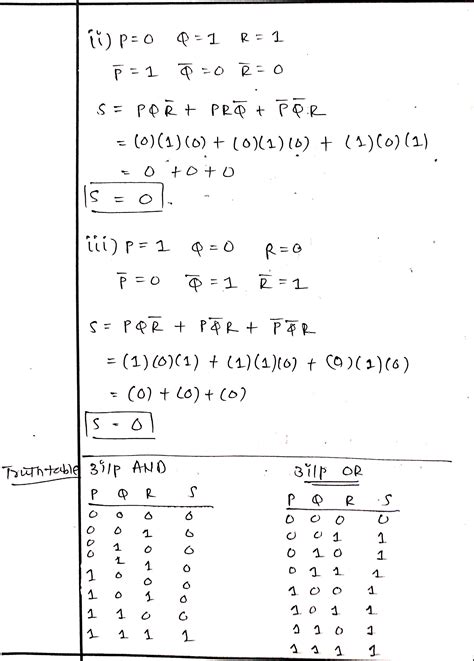 ii) P=0 Q=1 R=1
P̅=1 Q̅=0 R̅=0
S = PQR̅ + PRQ̅ + P̅Q̅.R
= (0)(1)(0) + (0)(1)(0) + (1)(0)(1)
= 0 + 0 + 0
S = 0.
iii) P=1 Q=0 R=0
P̅=0 Q̅=1 R̅=1
S = PQR̅ + PQ̅R + P̅Q̅R
= (1)(0)(1) + (1)(1)(0) + (0)(1)(0)
= (0) + (0) + (0)
S = 0
Truth table
3i/p AND
P Q R S
0 0 0 0
0 0 1 0
0 1 0 0
0 1 1 0
1 0 0 0
1 0 1 0
1 1 0 0
1 1 1 1
3i/p OR
P Q R S
0 0 0 0
0 0 1 1
0 1 0 1
0 1 1 1
1 0 0 1
1 0 1 1
1 1 0 1
1 1 1 1